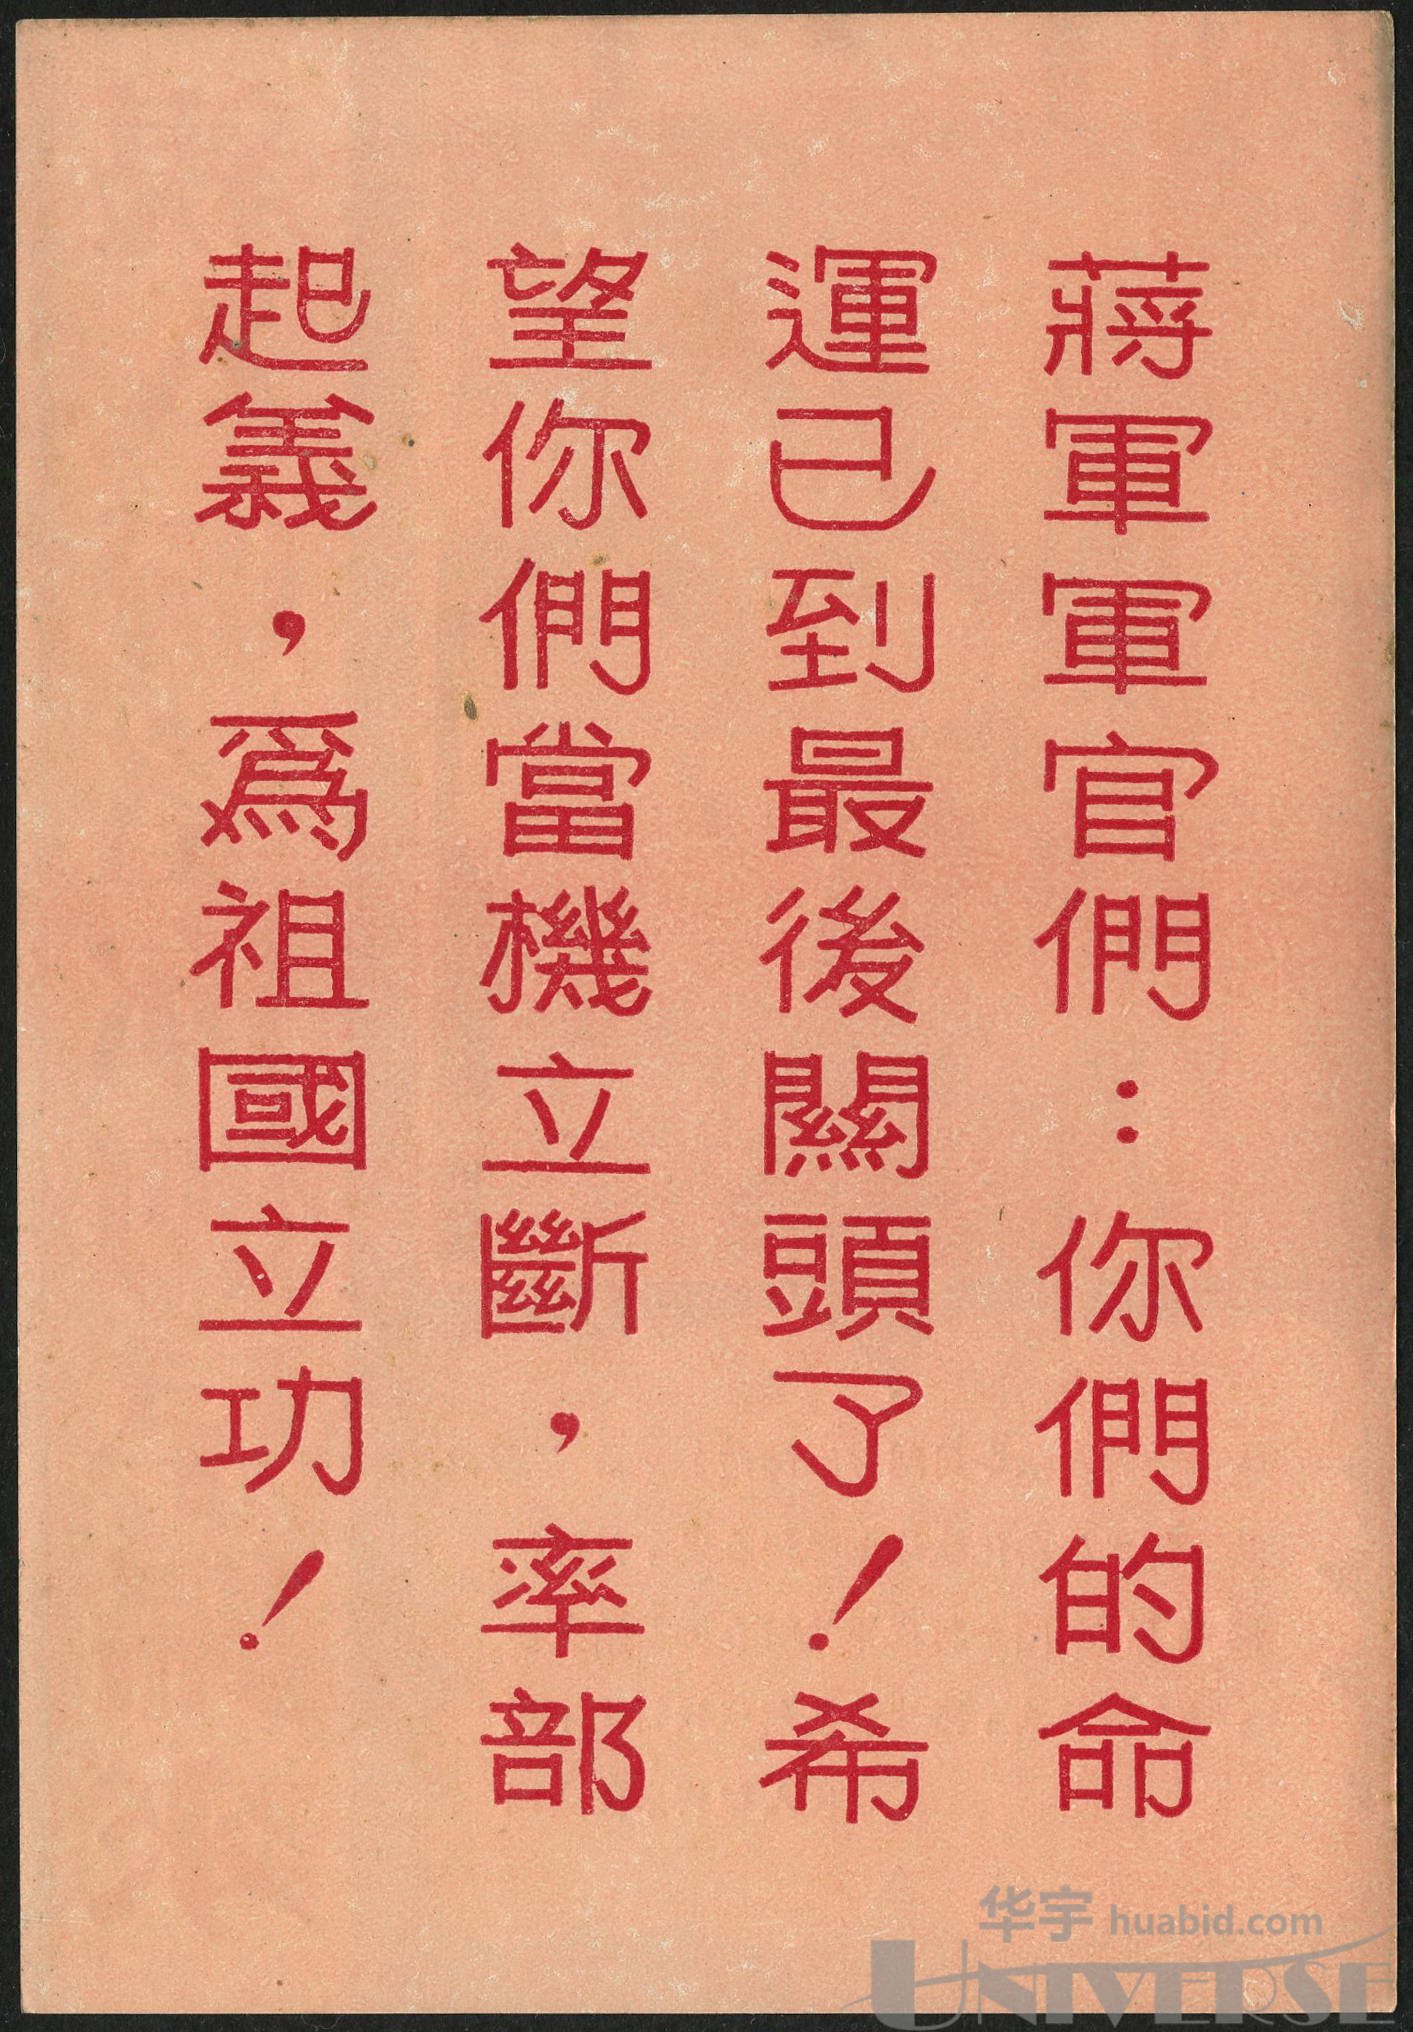 蔣軍軍官們：你們的命
運已到最後關頭了！希
望你們當機立斷，率部
起義，爲祖國立功！
华宇 huabid.com
UNIVERSE